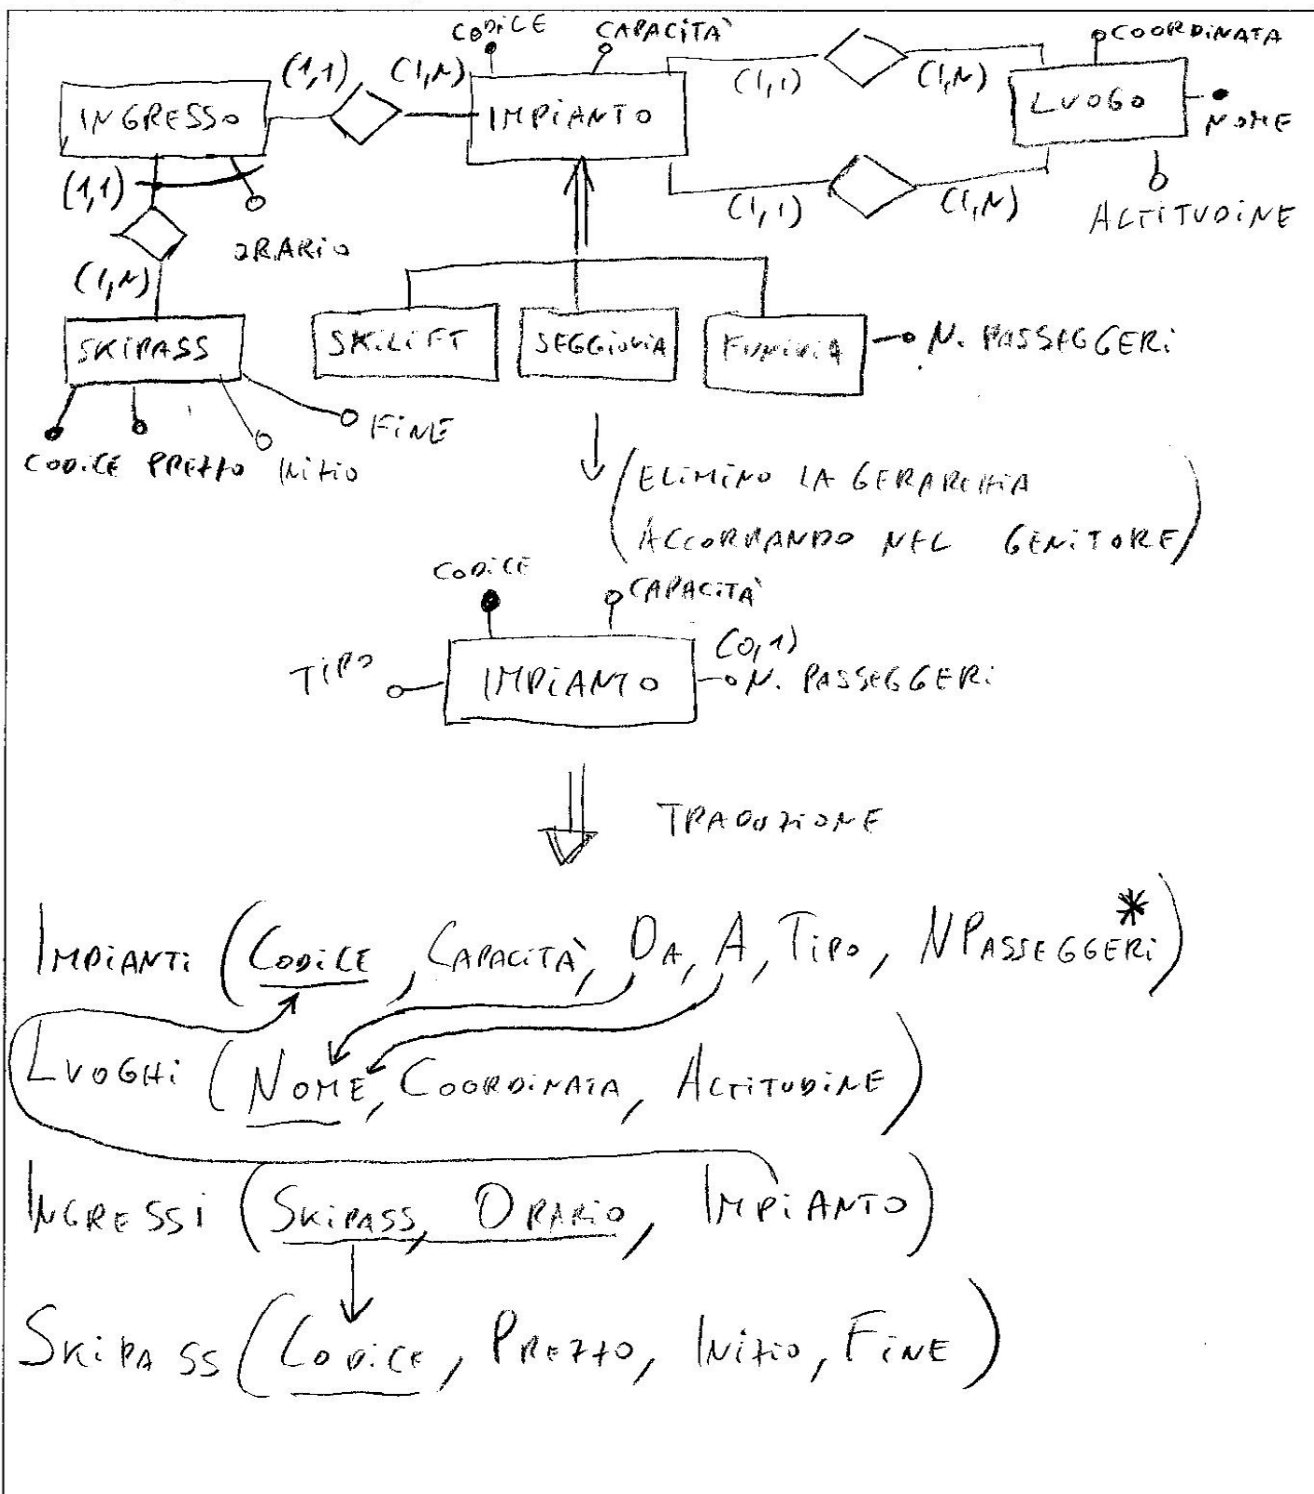 CODICE CAPACITÀ COORDINATA
(1,1) (1,N) (1,1) (1,N)
INGRESSO IMPIANTO LUOGO NOME
(1,1) (1,1) (1,N) ALTITUDINE
ORARIO
(1,N)
SKIPASS SKILIFT SEGGIOVIA FUNIVIA N. PASSEGGERI
FINE
CODICE PREZZO INIZIO
(ELIMINO LA GERARCHIA
ACCORPANDO NEL GENITORE)
CODICE CAPACITÀ
(0,1)
TIPO IMPIANTO N. PASSEGGERI
TRADUZIONE
IMPIANTI (CODICE, CAPACITÀ, DA, A, TIPO, NPASSEGGERI*)
LUOGHI (NOME, COORDINATA, ALTITUDINE)
INGRESSI (SKIPASS, ORARIO, IMPIANTO)
SKIPASS (CODICE, PREZZO, INIZIO, FINE)